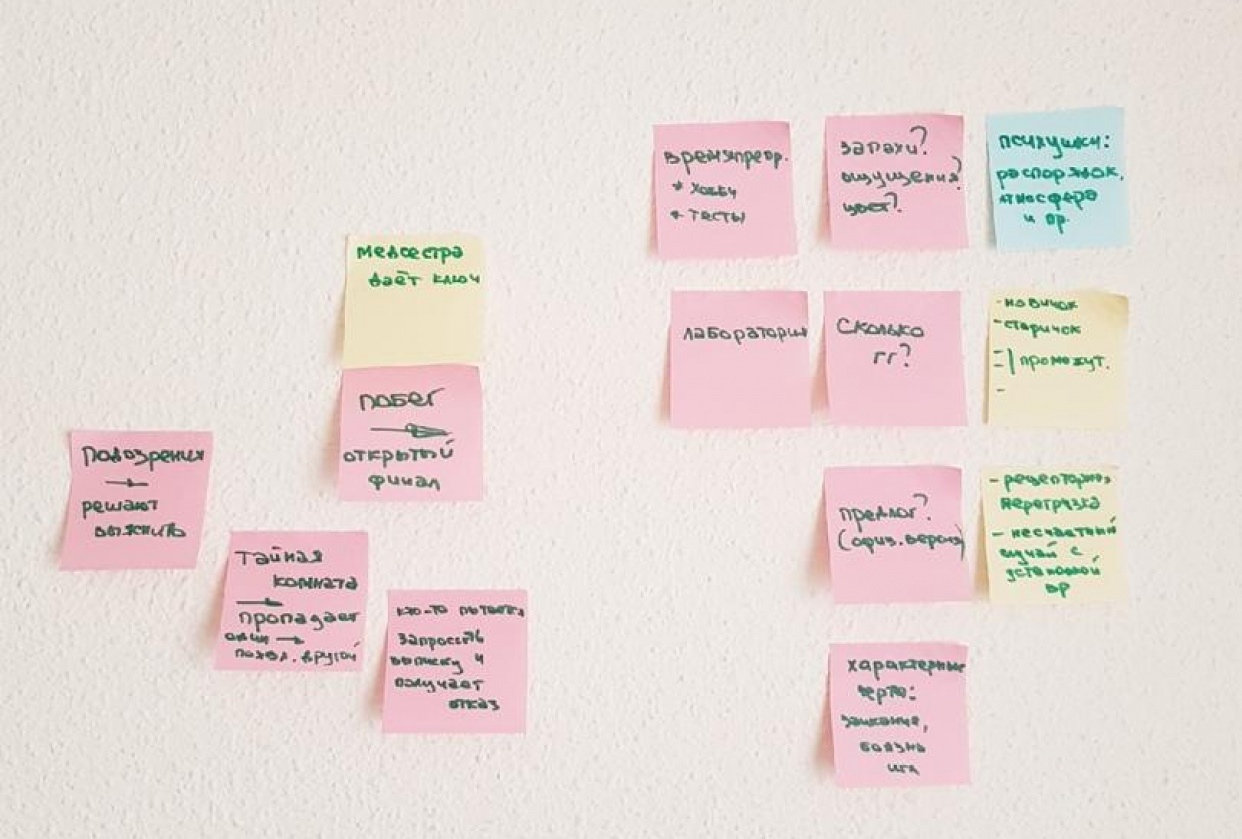 Подозрения
→
решают
выяснить
Тайная
комната
→
пропадает
один →
появл. другой
кто-то пытается
запросить
выписку и
получает
отказ
медсестра
даёт ключ
побег
→
открытый
финал
времяпрепр.
* хобби
* тесты
запахи?
ощущения?
цвет?
психушки:
распорядок,
атмосфера
и пр.
лаборатория
Сколько
гг?
- новичок
- старичок
- | промежут.
-
-
предлог?
(офиз. версия)
- рецепторная
перегрузка
- несчастный
случай с
установкой
ВР
характерные
черты:
заикание,
боязнь
игл